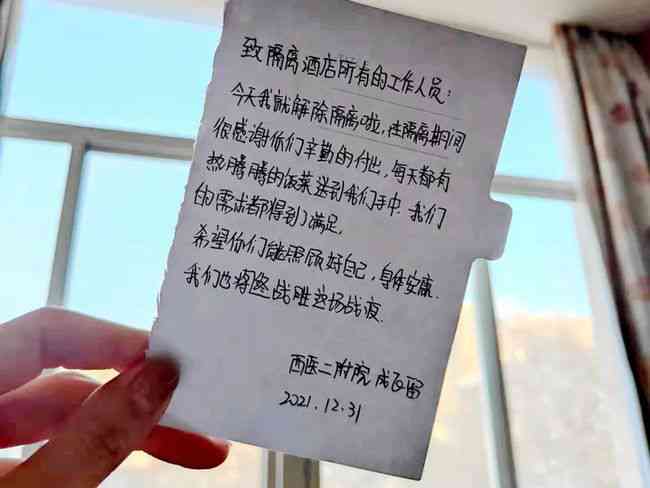 致隔离酒店所有的工作人员:
今天我就解除隔离啦,在隔离期间
很感谢你们辛勤的付出,每天都有
热腾腾的饭菜送到我们手中.我们
的需求都得到了满足.
希望你们能照顾好自己,身体安康.
我们也将终战胜这场战疫.
西医二附院
2021.12.31